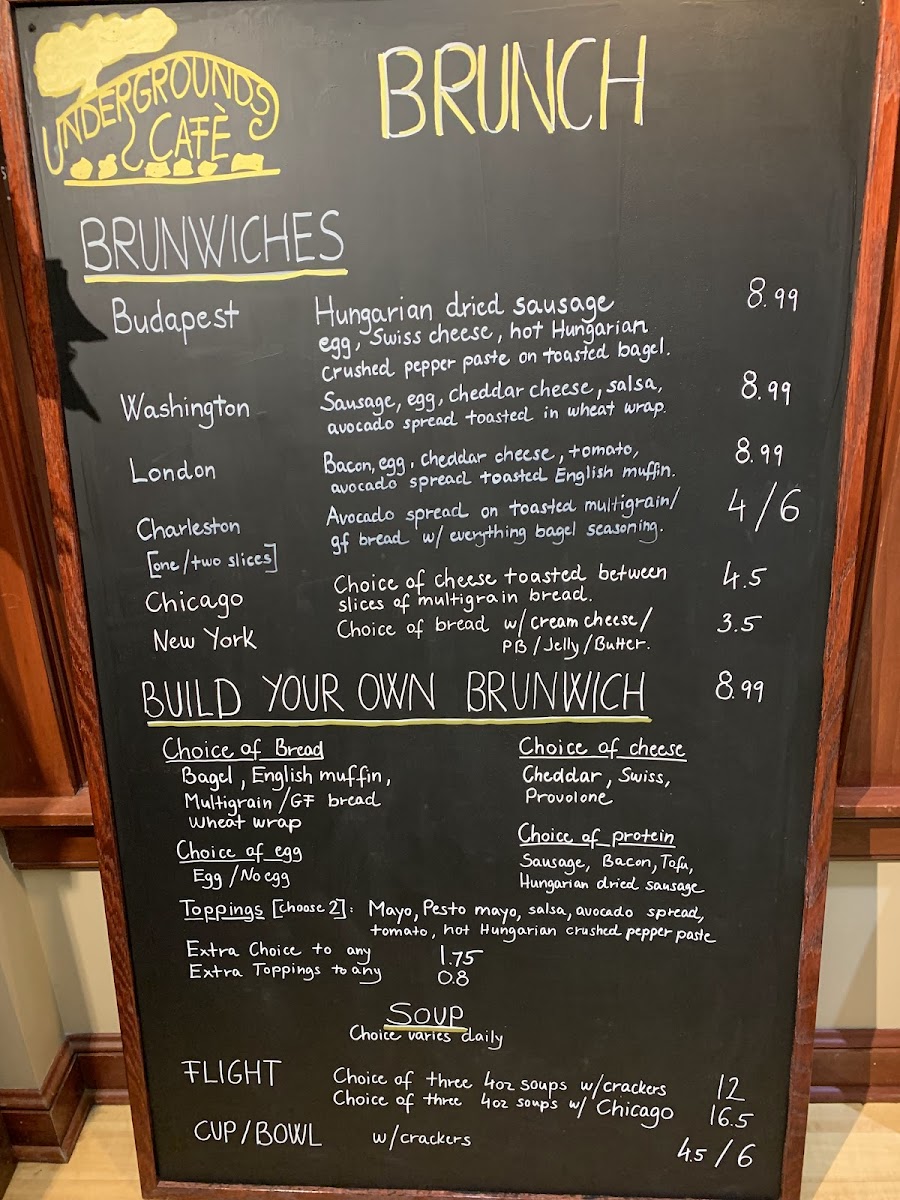 UNDERGROUNDS
CAFÈ
BRUNCH
BRUNWICHES
Budapest Hungarian dried sausage 8.99
egg, Swiss cheese, hot Hungarian
crushed pepper paste on toasted bagel.
Washington Sausage, egg, cheddar cheese, salsa, 8.99
avocado spread toasted in wheat wrap.
London Bacon, egg, cheddar cheese, tomato, 8.99
avocado spread toasted English muffin.
Charleston Avocado spread on toasted multigrain/ 4/6
[one/two slices] gf bread w/ everything bagel seasoning.
Chicago Choice of cheese toasted between 4.5
slices of multigrain bread.
New York Choice of bread w/ cream cheese/ 3.5
PB/Jelly/Butter.
BUILD YOUR OWN BRUNWICH 8.99
Choice of Bread
Bagel, English muffin,
Multigrain/GF bread
Wheat wrap
Choice of cheese
Cheddar, Swiss,
Provolone
Choice of egg
Egg/No egg
Choice of protein
Sausage, Bacon, Tofu,
Hungarian dried sausage
Toppings [choose 2]: Mayo, Pesto mayo, salsa, avocado spread,
tomato, hot Hungarian crushed pepper paste
Extra Choice to any 1.75
Extra Toppings to any 0.8
SOUP
Choice varies daily
FLIGHT Choice of three 4oz soups w/crackers 12
Choice of three 4oz soups w/ Chicago 16.5
CUP/BOWL w/crackers 4.5/6